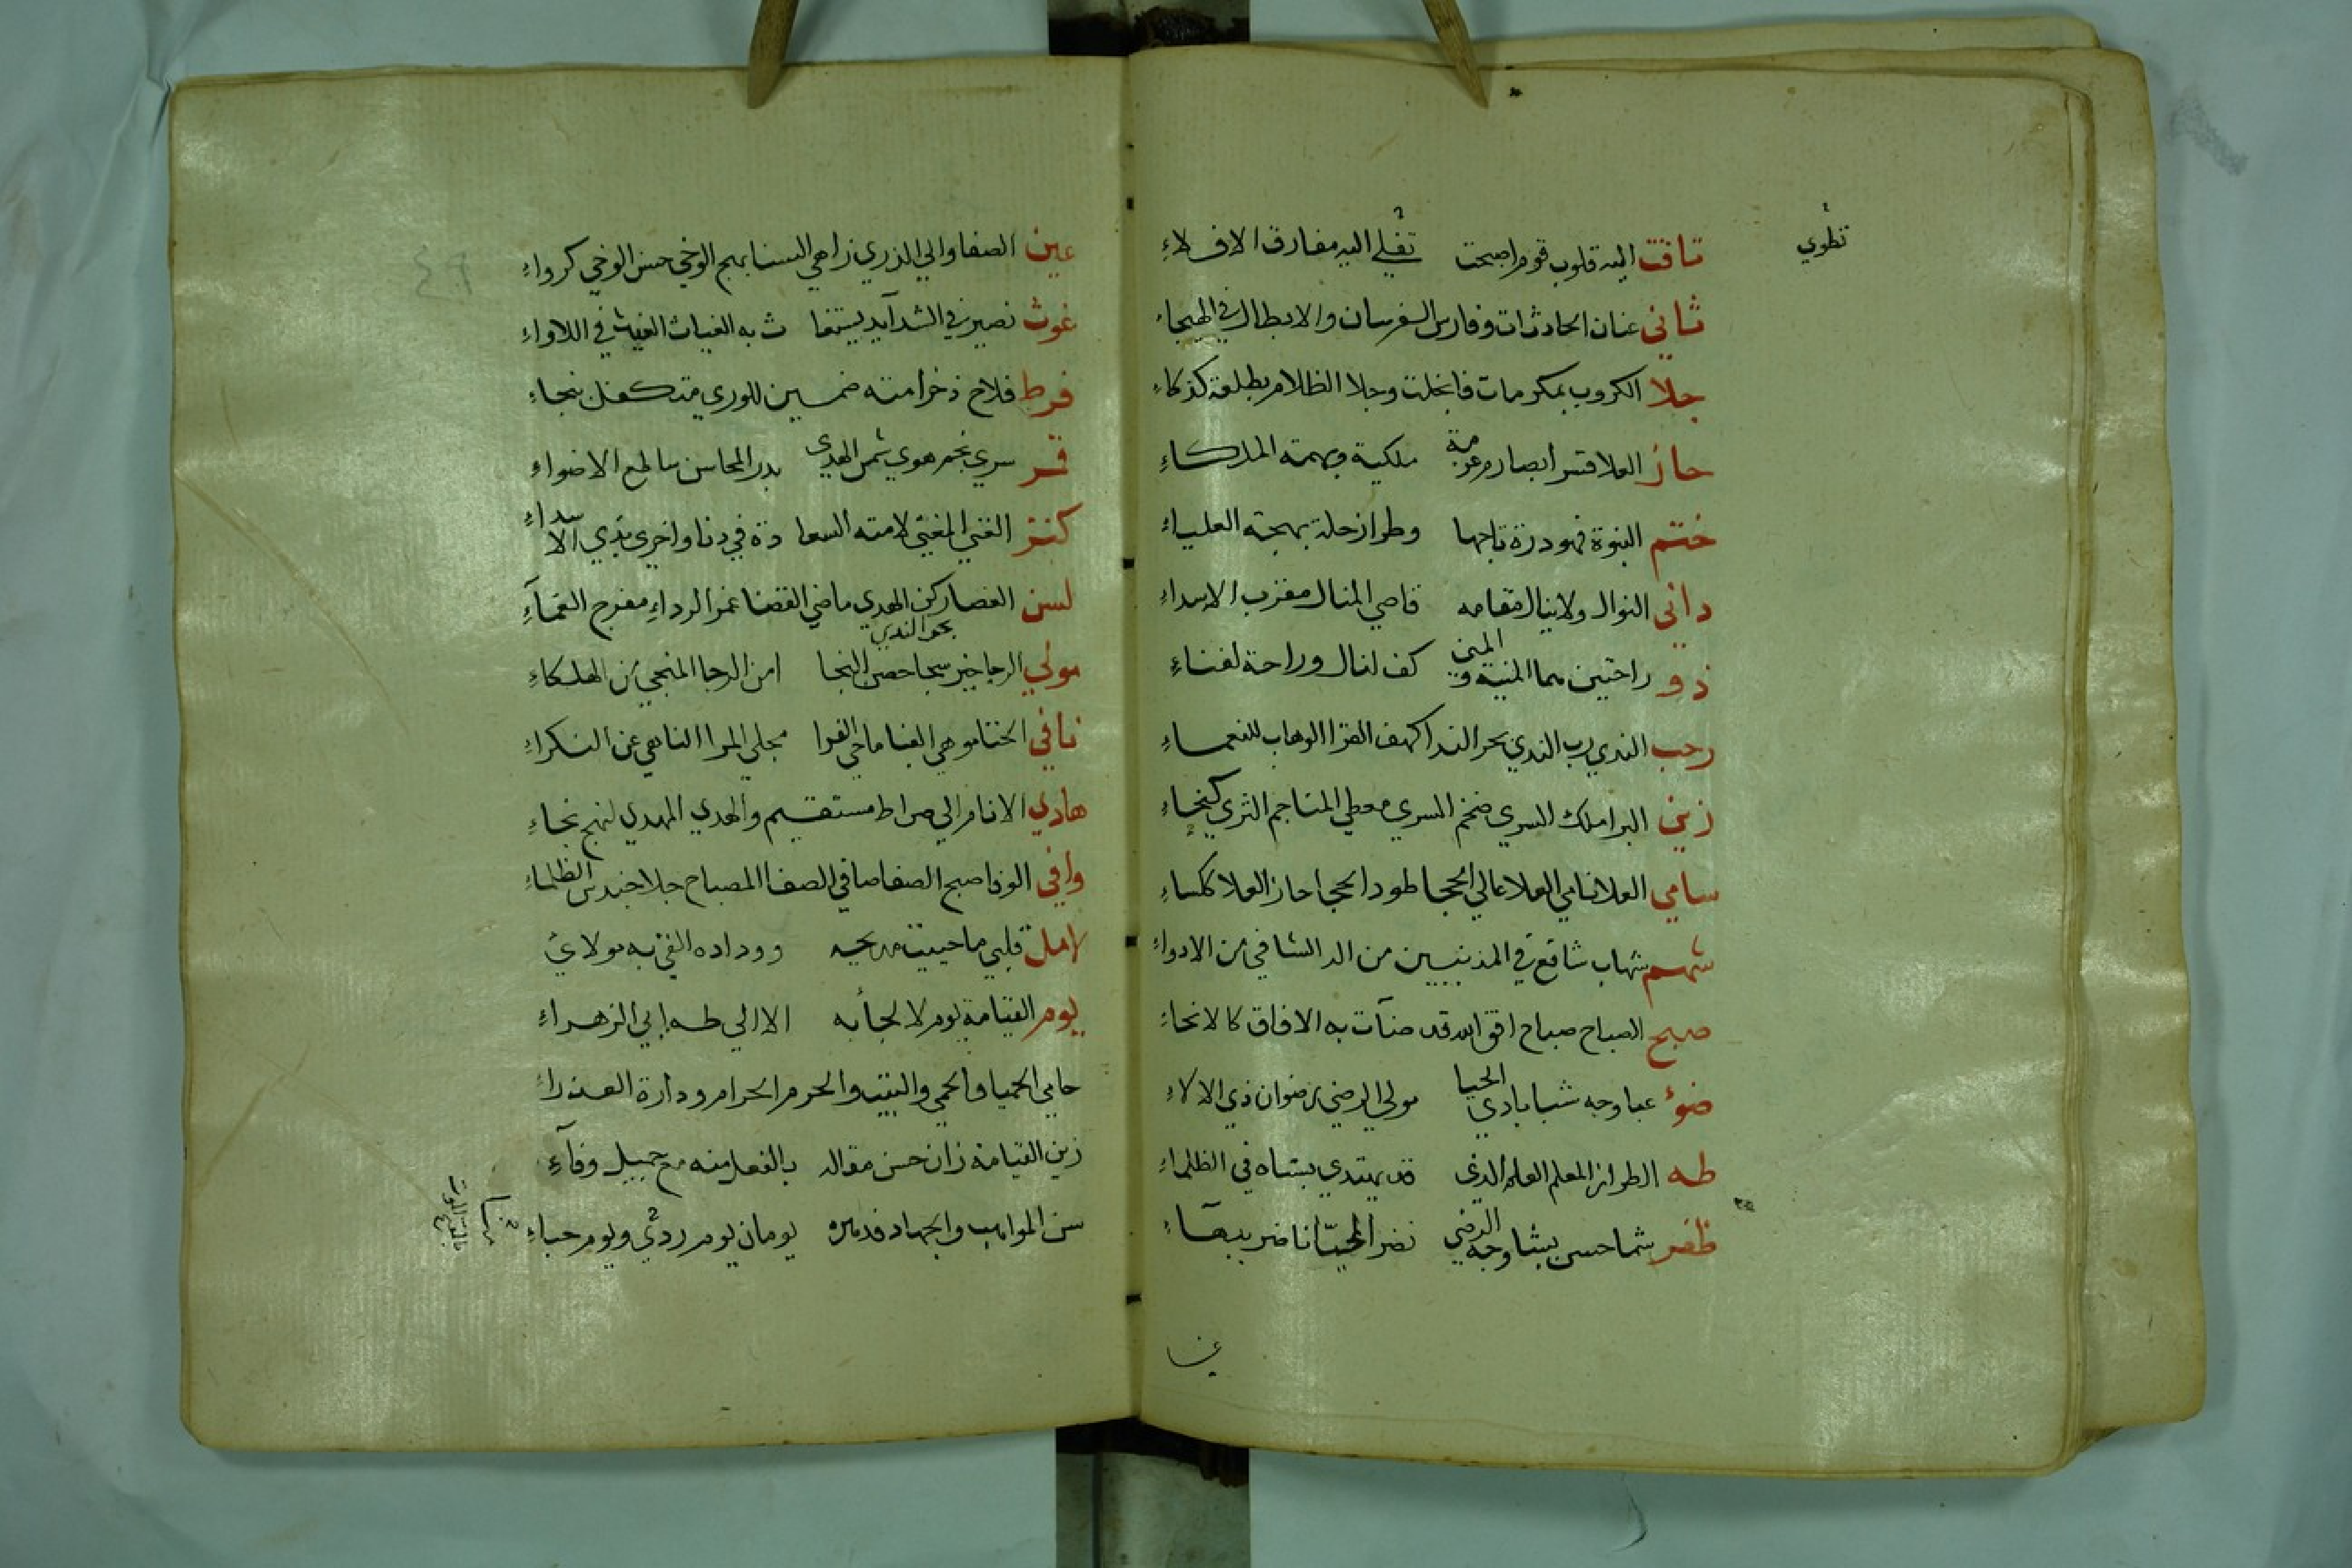 تطوي
تاقت اليه قلوب قوم اصبحت تفلي اليه مفارق الافلاء
ثاني عنان الحادثات وفارس الفرسان والابطال في الهيجاء
جلا الكروب بمكرمات فانجلت وجلا الظلام بطلعة كذكاء
حاز العلا قسرا بصارم عزمة ملكية وبهمة الملكاء
ختم النبوة فهو درة تاجها وطراز حلة بهجة العلياء
داني النوال ولاينال مقامه قاصي المنال مقرب الاسداء
ذو راحتين هما المنية والمنى كف لنال وراحة لفناء
رحب الندي رب الندي بحر الندا كهف القرا الوهاب للنعماء
زين البرا ملك السري ضخم السري معطي المناجم الثري
سامي العلا نامي العلا عالي الحجا طود الحجا حاز العلا
شهم شهاب شافع في المذنبين من الشافي من الادواء
صبح الصباح صباح افق الله قد ضآت به الافاق كالانحاء
ضوء وجه شبا بادي الحيا مولي الرضي رضوان ذي الالاء
طه الطراز المعلم العلم الذي قد يهتدي بسناه في الظلماء
ظفر شما حسن بشا وجه الرضي نضر المحيا ناضر ببهآء
عين
عين الصفا وابي الذري زاهي السنا بهج الوخي حسن الوخي كرواء
غوث نصير في الشدآيد يستغا ث به الغياث الغيث في اللاواء
فرط فلاح ذخر امته ضمين للوري متكفل بنجاء
قمر سري نجم هوي شمس الهدى بدر المحاسن ساطع الاضواء
كنز الغني المغني لامته السعا دة في دنا واخرى بذي الاسداء
لسن العصا ركن الهدي ماضي القضا غمر الرداء مفرج الغمآء
بحر الندي
مولي الرجا خير سجا حصن النجا امن الرجا المنجي من الهلكاء
نافي الخنا موهي العنا ماحي الغوا مجلي المرا الناهي عن النكراء
هادي الانام الي صراط مستقيم والهدي المهدي لنهج نجاء
وافي الوفا صبح الصفا صافي الصفا المصباح جلا حندس الظلماء
لامل قلبي ماحييت مديحه ووداده القي به مولائي
يوم القيامة يوم لا لجأ به الا الي طه ابي الزهراء
حامي الحميا والحمي والبيت والحرم الحرام ودارة العذراء
زين القيامة زان حسن مقاله بالفعل منه مع جميل وفآء
سن المواهب والجهاد فدهره يومان يوم ردئ ويوم حباء